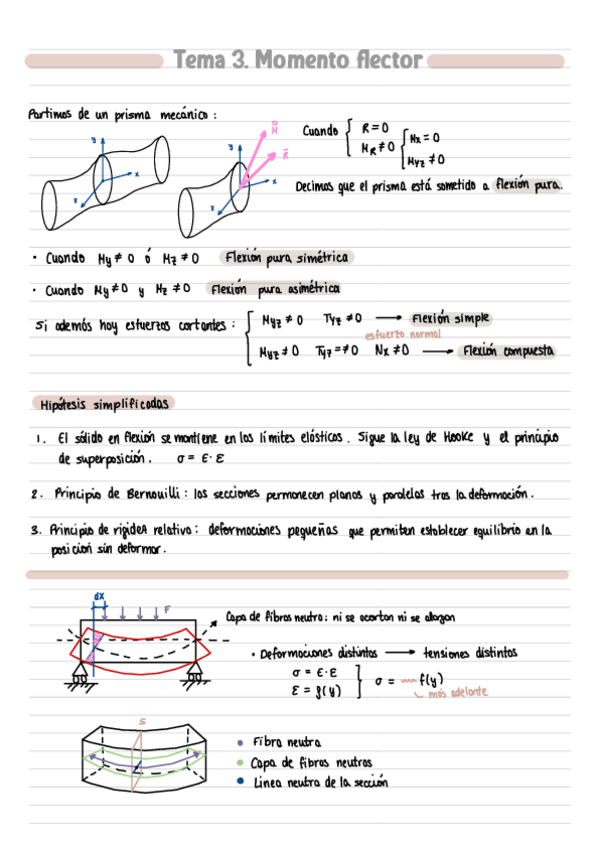 Tema 3. Momento flector
Partimos de un prisma mecánico :
y x z
y x z
Cuando { R = 0
M_R ≠ 0 { Mx = 0
Myz ≠ 0
Decimos que el prisma está sometido a flexión pura.
· Cuando My ≠ 0 ó Mz ≠ 0 Flexión pura simétrica
· Cuando My ≠ 0 y Mz ≠ 0 Flexión pura asimétrica
Si además hay esfuerzos cortantes : { Myz ≠ 0 Tyz ≠ 0 → Flexión simple
esfuerzo normal
Myz ≠ 0 Tyz = ≠ 0 Nx ≠ 0 → Flexión compuesta
Hipótesis simplificadas
1. El sólido en flexión se mantiene en los límites elásticos. Sigue la ley de Hooke y el principio
de superposición. σ = E · ε
2. Principio de Bernouilli : las secciones permanecen planas y paralelas tras la deformación.
3. Principio de rigidez relativa : deformaciones pequeñas que permiten establecer equilibrio en la
posición sin deformar.
dx
F
Capa de fibras neutra: ni se acortan ni se alargan
· Deformaciones distintas → tensiones distintas
σ = E · ε
ε = f(y) } σ = f(y)
más adelante
S
• Fibra neutra
• Capa de fibras neutras
• Linea neutra de la sección